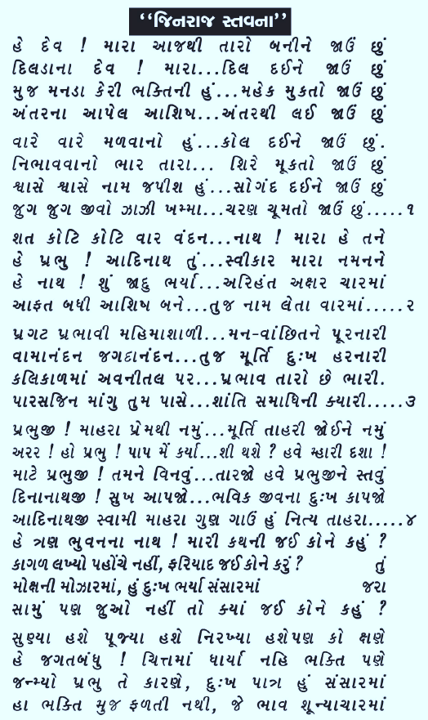 “જિનરાજ સ્તવના”
હે દેવ ! મારા આજથી તારો બનીને જાઉં છું
દિલડાના દેવ ! મારા...દિલ દઈને જાઉં છું
મુજ મનડા કેરી ભક્તિની હું...મહેક મુકતો જાઉં છું
અંતરના આપેલ આશિષ...અંતરથી લઈ જાઉં છું
વારે વારે મળવાનો હું...કોલ દઈને જાઉં છું.
નિભાવવાનો ભાર તારા... શિરે મૂકતો જાઉં છું
શ્વાસે શ્વાસે નામ જપીશ હું...સોગંદ દઈને જાઉં છું
જુગ જુગ જીવો ઝાઝી ખમ્મા...ચરણ ચૂમતો જાઉં છું.....૧
શત કોટિ કોટિ વાર વંદન...નાથ ! મારા હે તને
હે પ્રભુ ! આદિનાથ તું...સ્વીકાર મારા નમનને
હે નાથ ! શું જાદુ ભર્યા...અરિહંત અક્ષર ચારમાં
આફત બધી આશિષ બને...તુજ નામ લેતા વારમાં.....૨
પ્રગટ પ્રભાવી મહિમાશાળી...મન-વાંછિતને પૂરનારી
વામાનંદન જગદાનંદન...તુજ મૂર્તિ દુઃખ હરનારી
કલિકાળમાં અવનીતલ પર...પ્રભાવ તારો છે ભારી.
પારસજિન માંગુ તુમ પાસે...શાંતિ સમાધિની ક્યારી.....૩
પ્રભુજી ! માહરા પ્રેમથી નમું...મૂર્તિ તાહરી જોઈને નમું
અરર ! હો પ્રભુ ! પાપ મેં કર્યા...શી થશે ? હવે મ્હારી દશા !
માટે પ્રભુજી ! તમને વિનવું...તારજો હવે પ્રભુજીને સ્તવું
દિનાનાથજી ! સુખ આપજો...ભવિક જીવના દુઃખ કાપજો
આદિનાથજી સ્વામી માહરા ગુણ ગાઉં હું નિત્ય તાહરા.....૪
હે ત્રણ ભુવનના નાથ ! મારી કથની જઈ કોને કહું ?
કાગળ લખ્યો પહોંચે નહીં, ફરિયાદ જઈ કોને કરું ? તું
મોક્ષની મોઝારમાં, હું દુઃખ ભર્યા સંસારમાં જરા
સામું પણ જુઓ નહીં તો ક્યાં જઈ કોને કહું ?
સુણ્યા હશે પૂજ્યા હશે નિરખ્યા હશેપણ કો ક્ષણે
હે જગતબંધુ ! ચિત્તમાં ધાર્યા નહિ ભક્તિ પણે
જન્મ્યો પ્રભુ તે કારણે, દુઃખ પાત્ર હું સંસારમાં
હા ભક્તિ મુજ ફળતી નથી, જે ભાવ શૂન્યાચારમાં